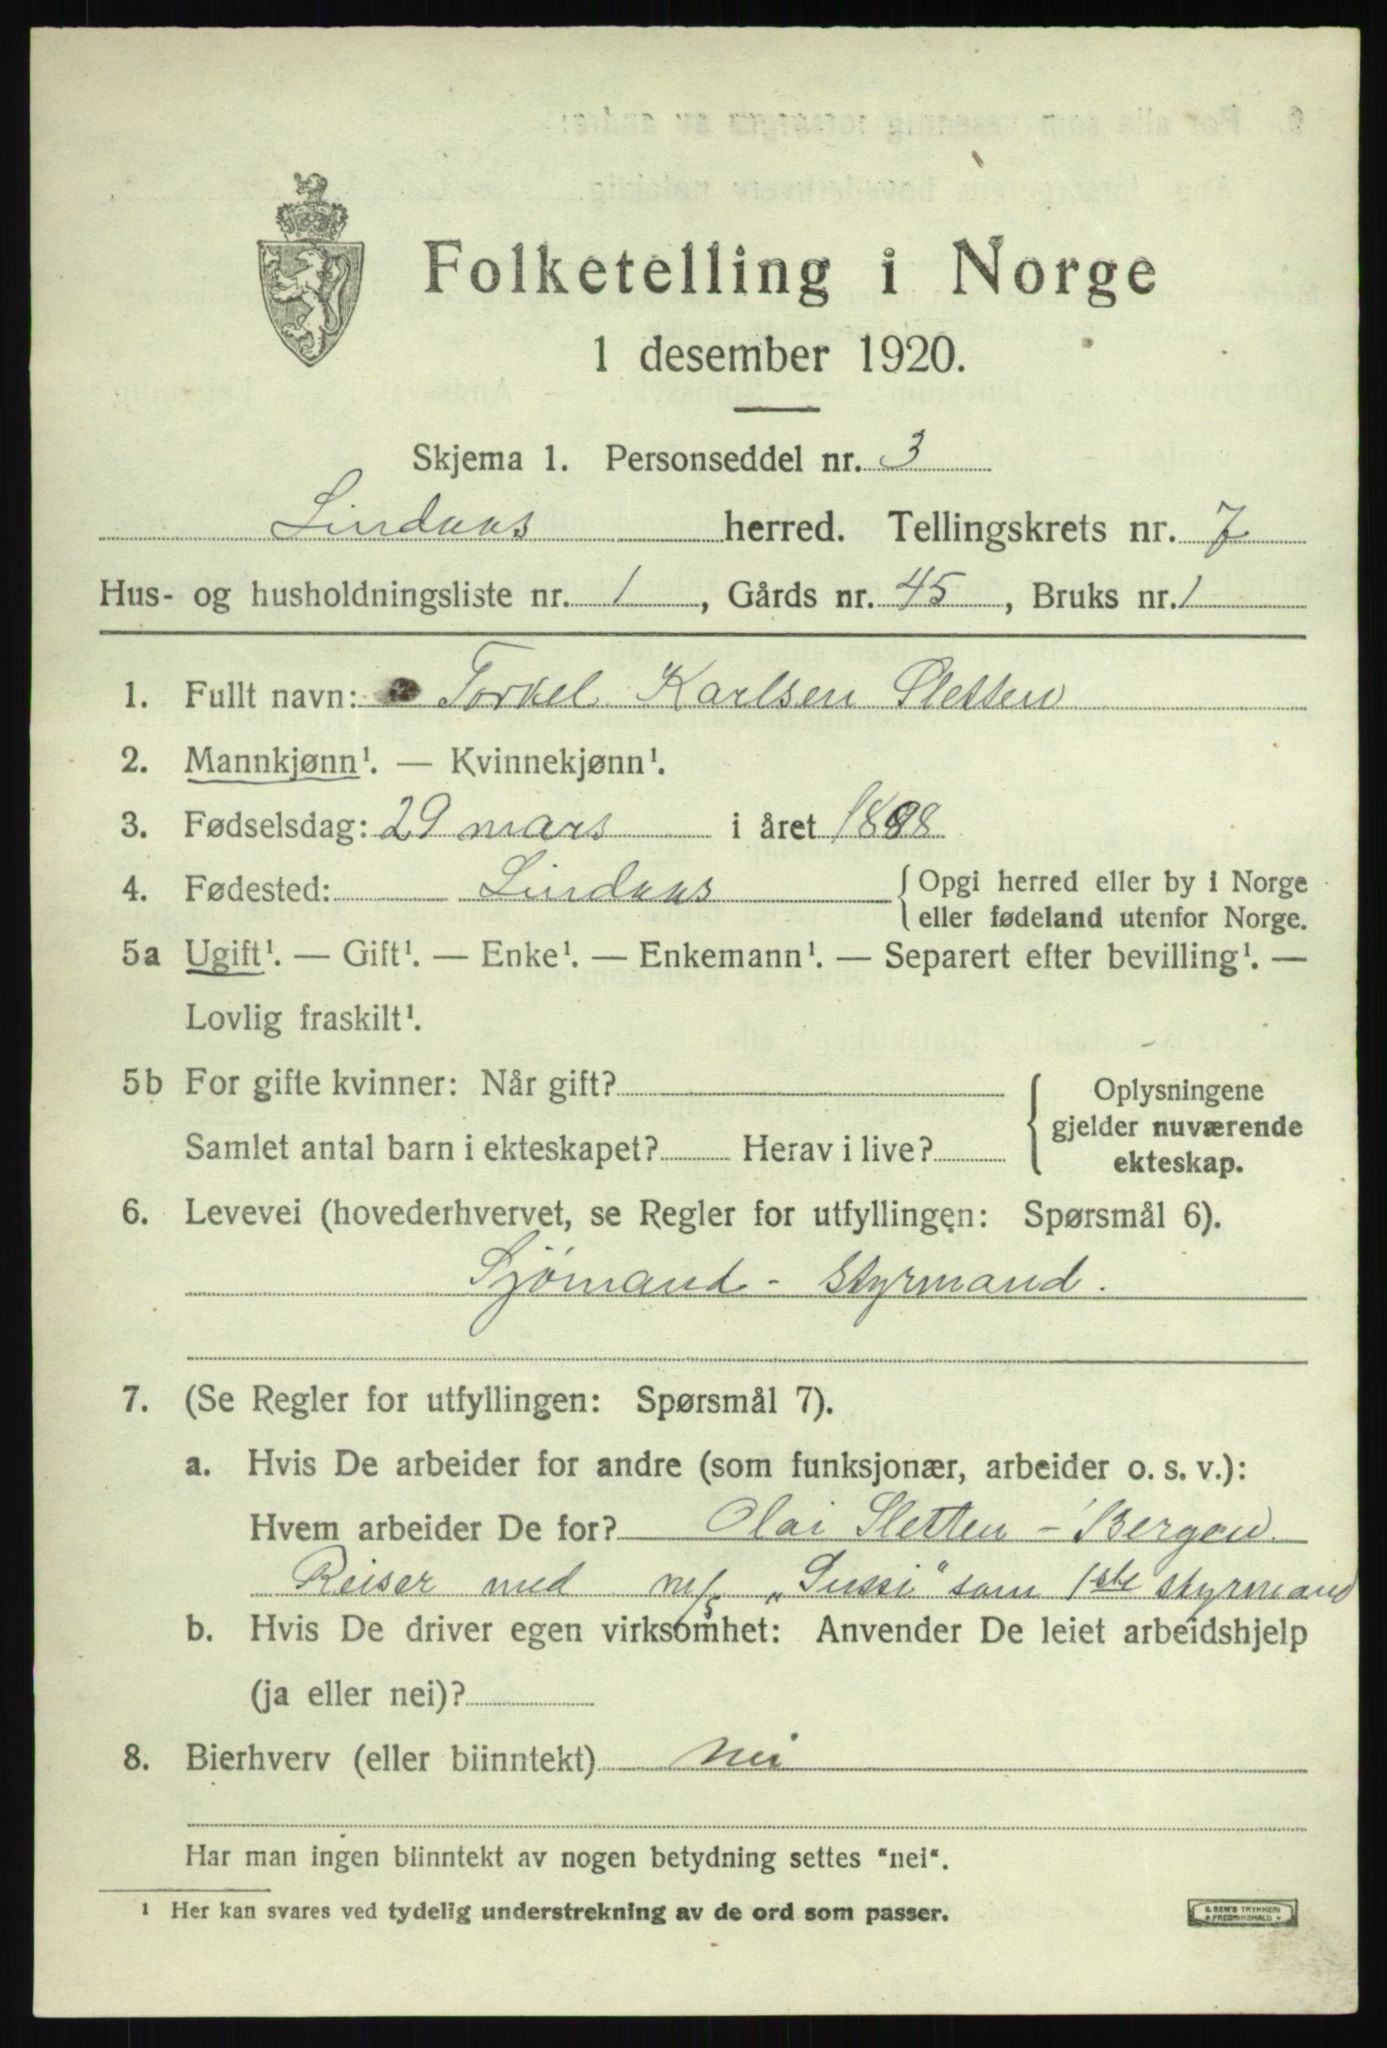 Folketelling i Norge
1 desember 1920.
Skjema 1. Personseddel nr. 3
Lindaas herred. Tellingskrets nr. 7
Hus- og husholdningsliste nr. 1, Gårds nr. 45, Bruks nr. 1
1. Fullt navn: Torkel Karlsen Sletten
2. Mannkjønn¹. — Kvinnekjønn¹.
3. Fødselsdag: 29 mars i året 1898
4. Fødested: Lindaas { Opgi herred eller by i Norge
eller fødeland utenfor Norge.
5a Ugift¹. — Gift¹. — Enke¹. — Enkemann¹. — Separert efter bevilling¹. —
Lovlig fraskilt¹.
5b For gifte kvinner: Når gift?
Samlet antal barn i ekteskapet? Herav i live?
Oplysningene
gjelder nuværende
ekteskap.
6. Levevei (hovederhvervet, se Regler for utfyllingen: Spørsmål 6).
Sjömand - styrmand.
7. (Se Regler for utfyllingen: Spørsmål 7).
a. Hvis De arbeider for andre (som funksjonær, arbeider o. s. v.):
Hvem arbeider De for? Olai Sletten - Bergen.
Reiser med m/s „Sussi" som 1ste styrmand
b. Hvis De driver egen virksomhet: Anvender De leiet arbeidshjelp
(ja eller nei)?
8. Bierhverv (eller biinntekt) nei
Har man ingen biinntekt av nogen betydning settes "nei".
¹ Her kan svares ved tydelig understrekning av de ord som passer.
E. SEM'S TRYKKERI
FREDRIKSHALD